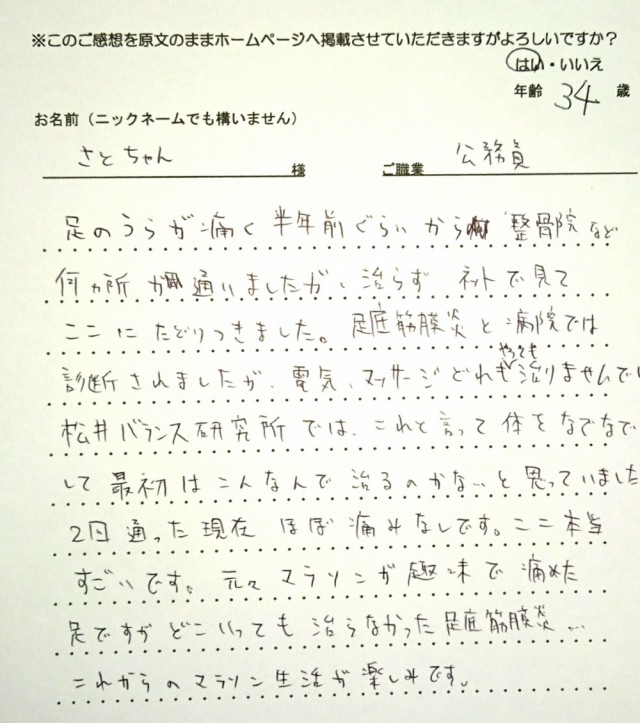 ※このご感想を原文のままホームページへ掲載させていただきますがよろしいですか？
はい・いいえ
年齢 34 歳
お名前（ニックネームでも構いません）
さとちゃん 様 ご職業 公務員
足のうらが痛く 半年前ぐらいから 整骨院など
何ヵ所か 通いましたが、治らず ネットで見て
ここに たどりつきました。足底筋膜炎と病院では
やっても
診断されましたが、電気、マッサージどれも治りませんで
松井バランス研究所では、これと言って体をなでなで
して 最初は こんなんで 治るのかな…と思っていました
2回通った現在 ほぼ 痛みなしです。ここ本当
すごいです。元々マラソンが趣味で痛めた
足ですが どこいっても 治らなかった足底筋膜炎…
これからのマラソン生活が楽しみです。